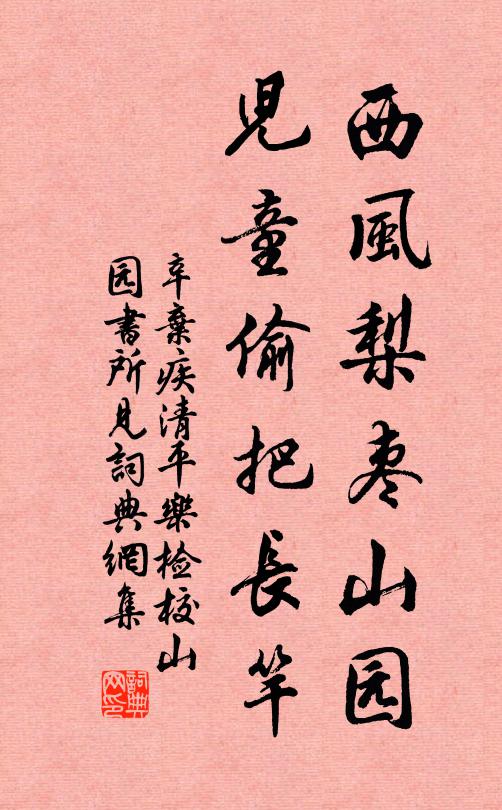 西風梨枣山园
兒童偷把長竿
辛棄疾清平樂检校山
园書所見詞典網集
詞典网印